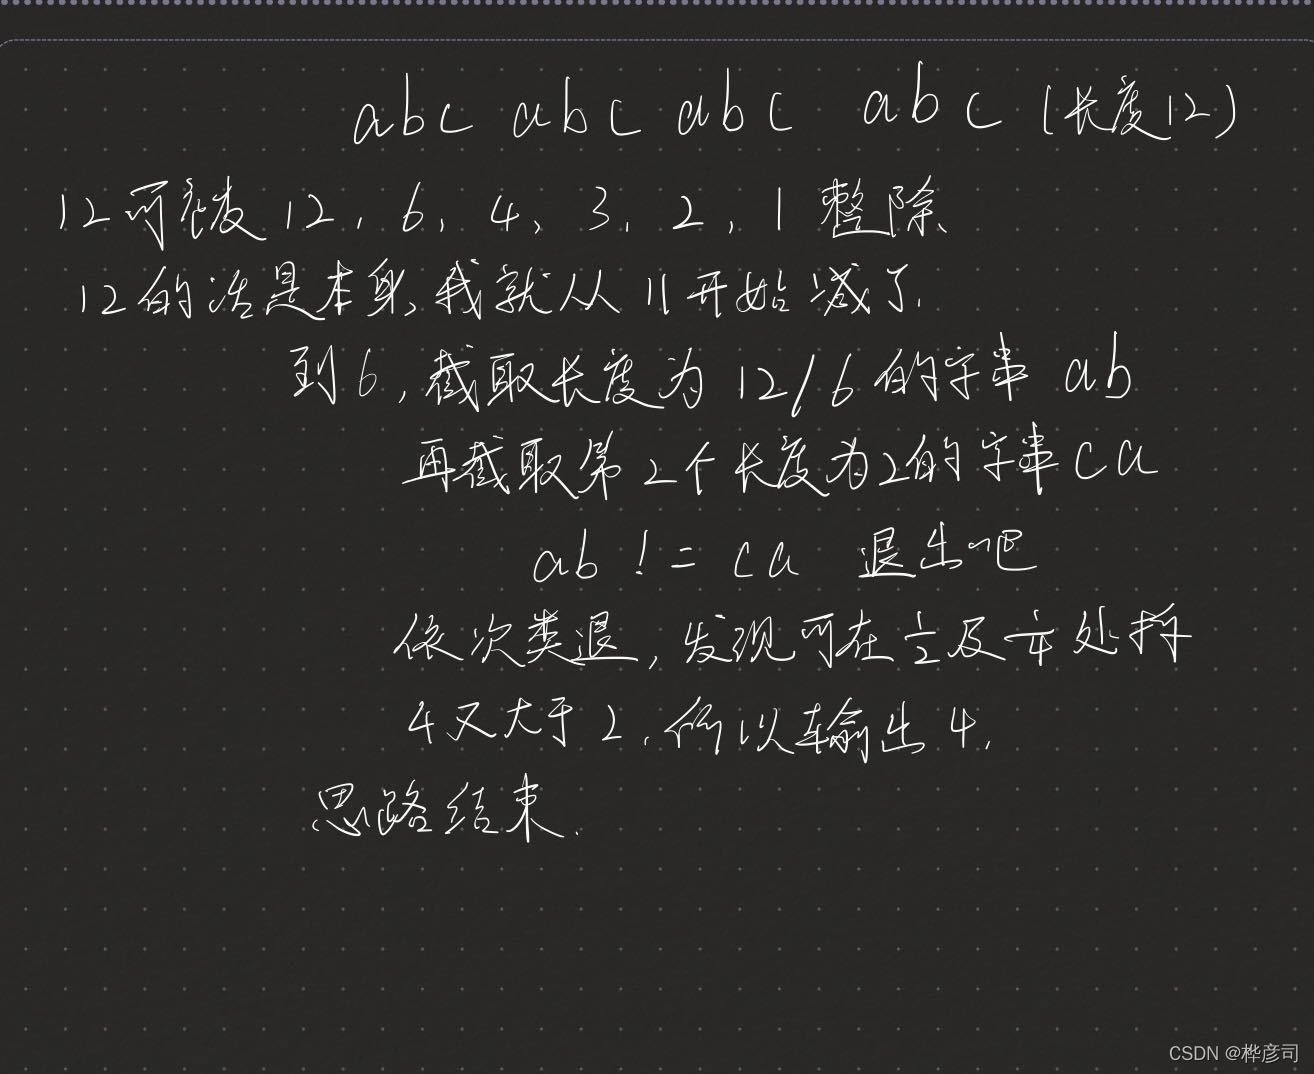 abc abc abc abc (长度12)
12可被 12, 6, 4, 3, 2, 1 整除
12的话是本身,我就从11开始减了.
到6,截取长度为12/6的字串 ab
再截取第2个长度为2的字串ca
ab != ca 退出吧
依次类退,发现可在½及¼处拆
4又大于2.所以输出4.
思路结束.
CSDN @桦彦司